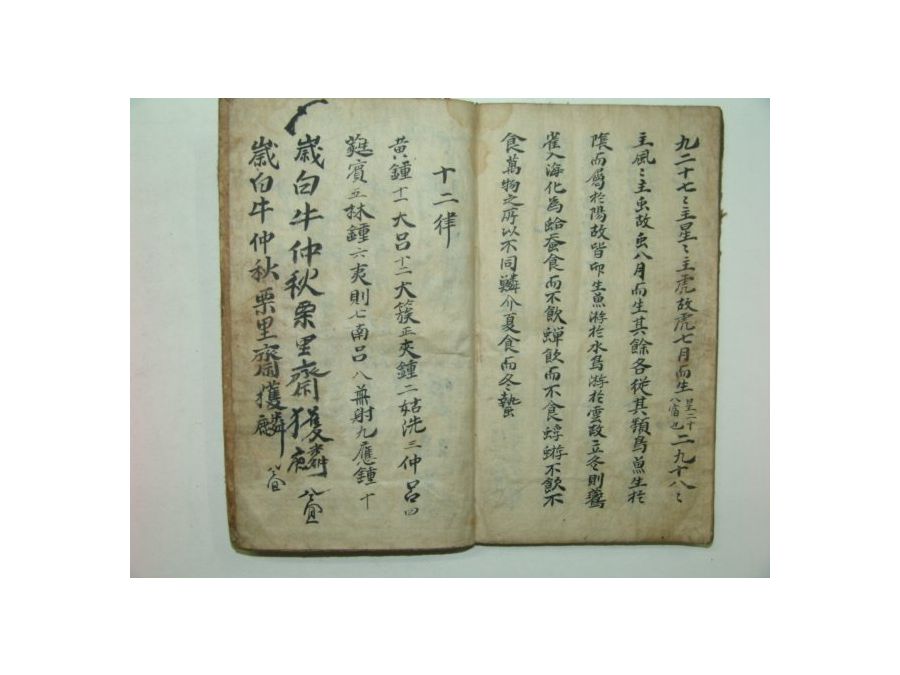 九二十七〻主星〻主虎故虎七月而生 星二十八宿也 二九十八〻
主風〻主虫故虫八月而生其餘各從其類鳥魚生於
陰而属於陽故皆卵生魚游於水鳥游於雲故立冬則燕
雀入海化爲蛤蚕食而不飮蟬飮而不食蜉蝣不飮不
食萬物之所以不同鱗介夏食而冬蟄
十二律
黃鍾十一大呂十二大簇正夾鍾二姑洗三仲呂四
蕤賓五林鍾六夷則七南呂八無射九應鍾十
歲白牛仲秋栗里齋獲麟
歲白牛仲秋栗里齋獲麟